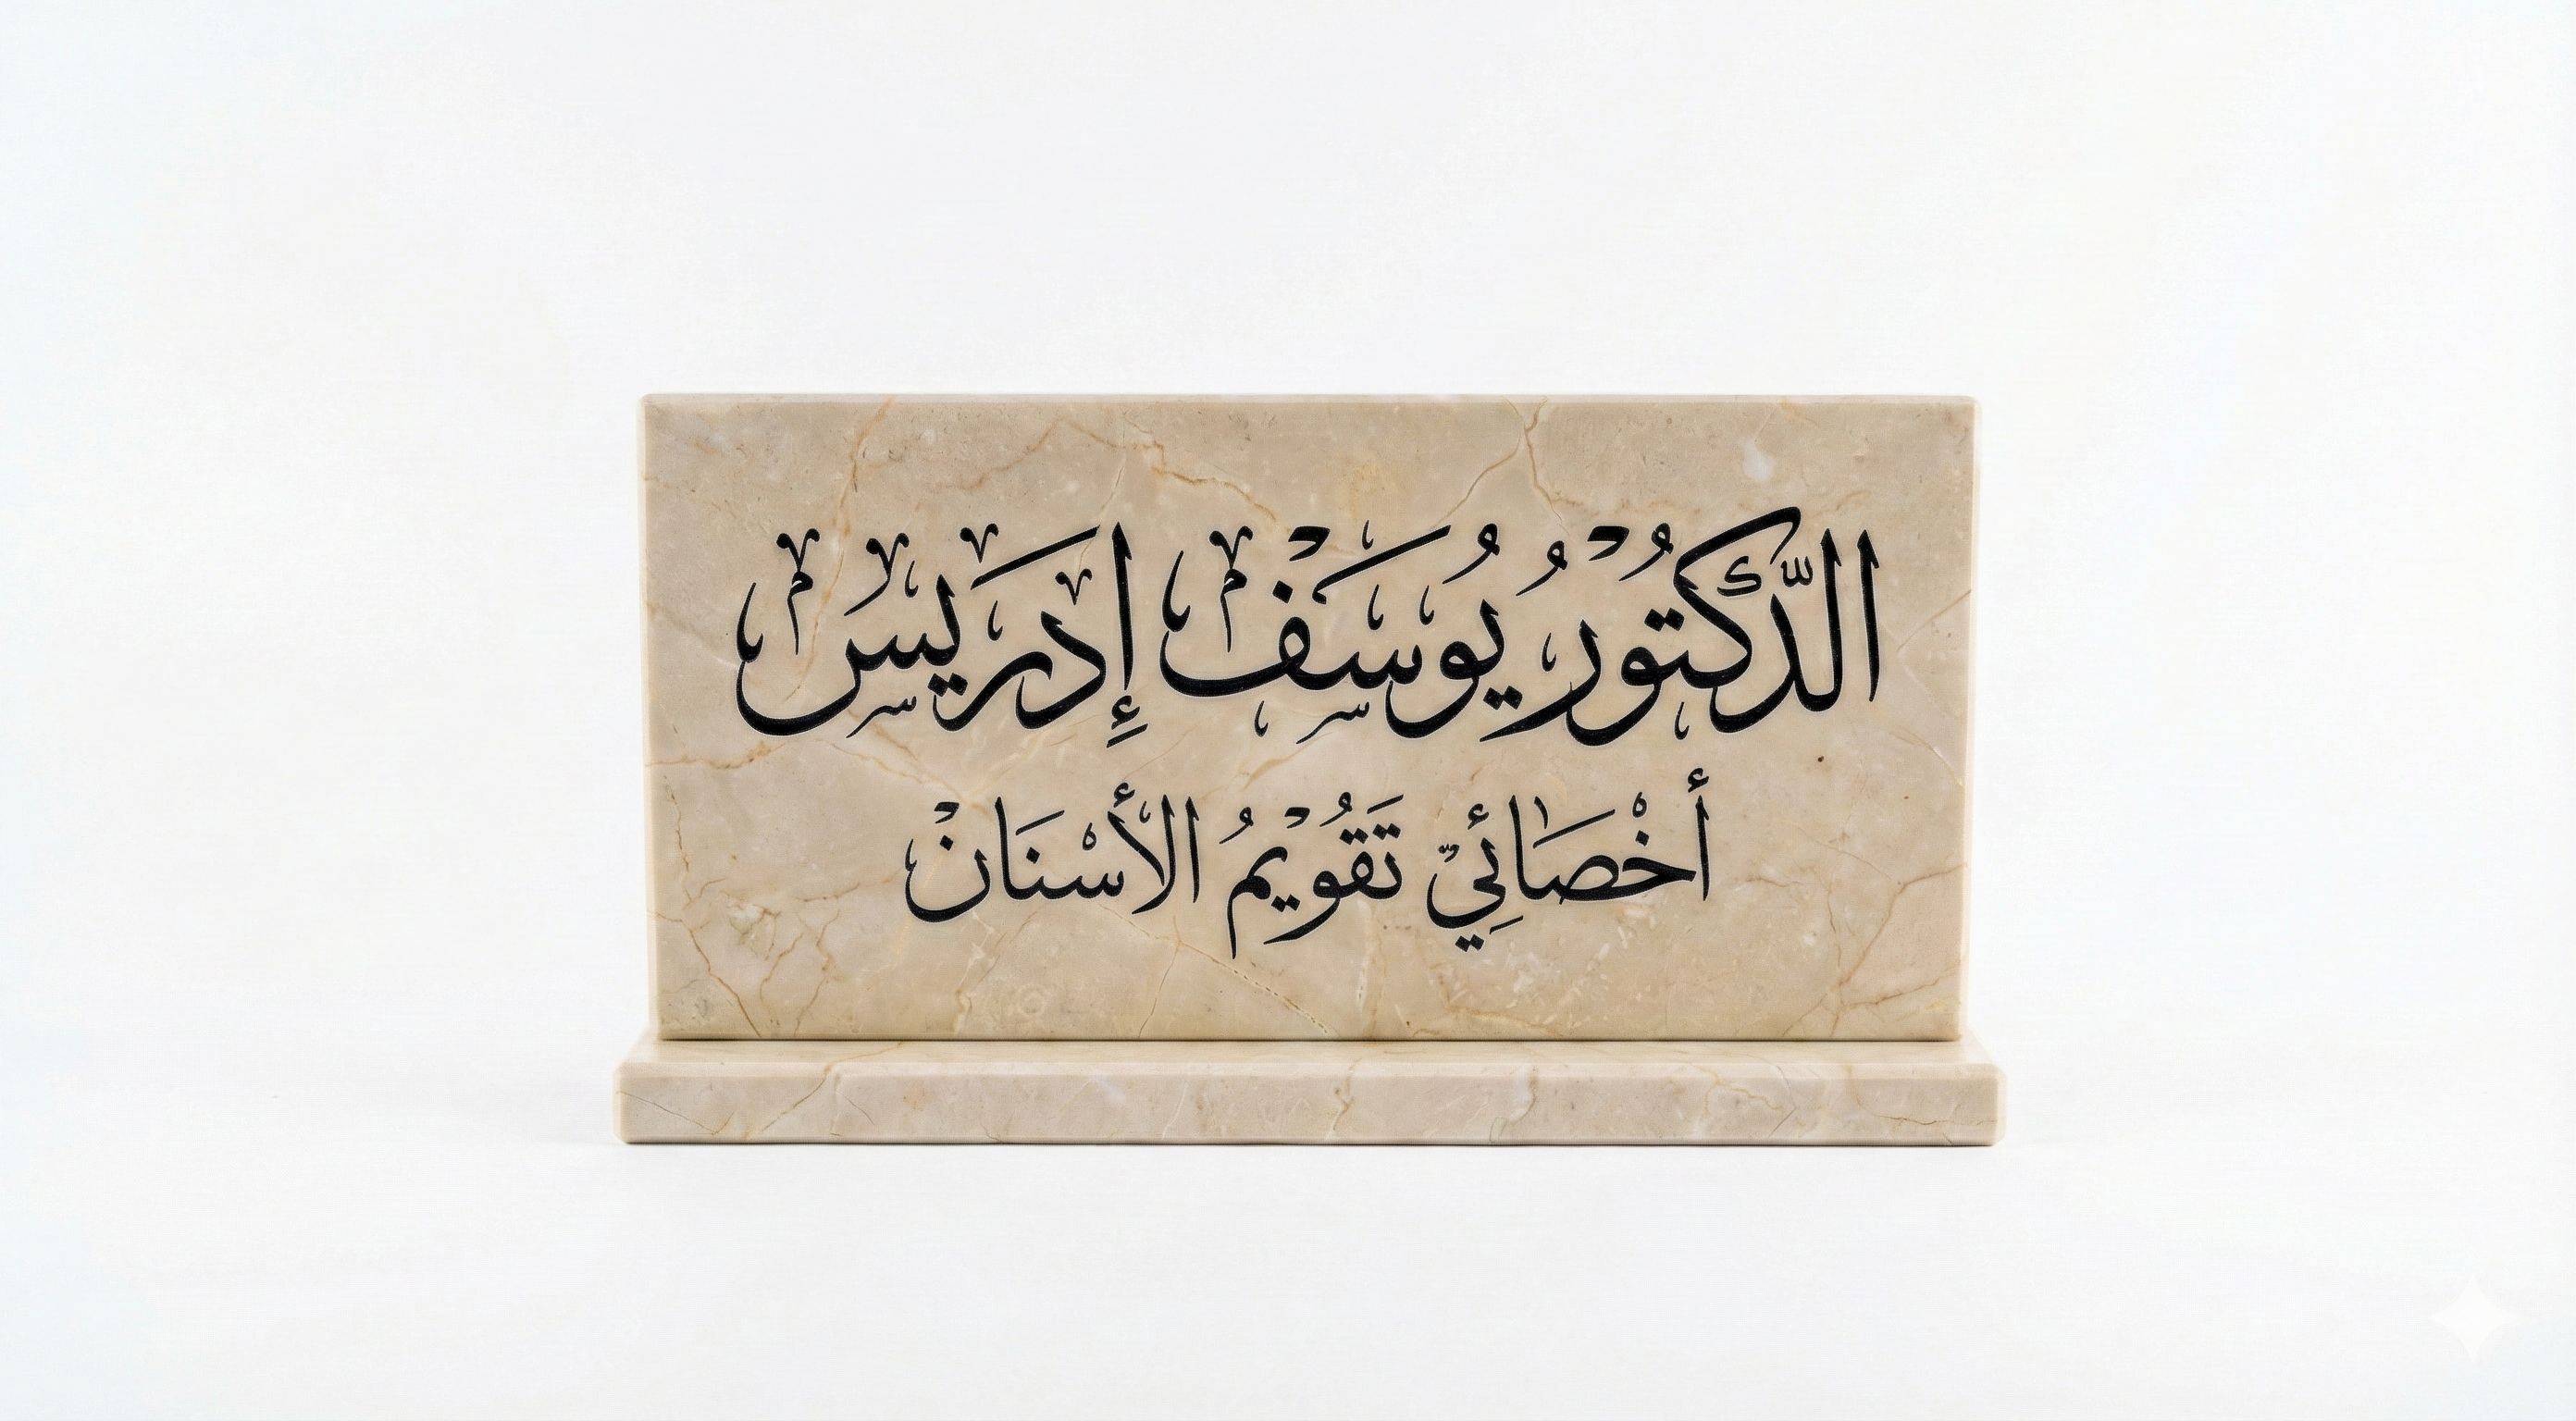 الدّكتور يوسف إدريس
أخصائي تقويم الأسنان